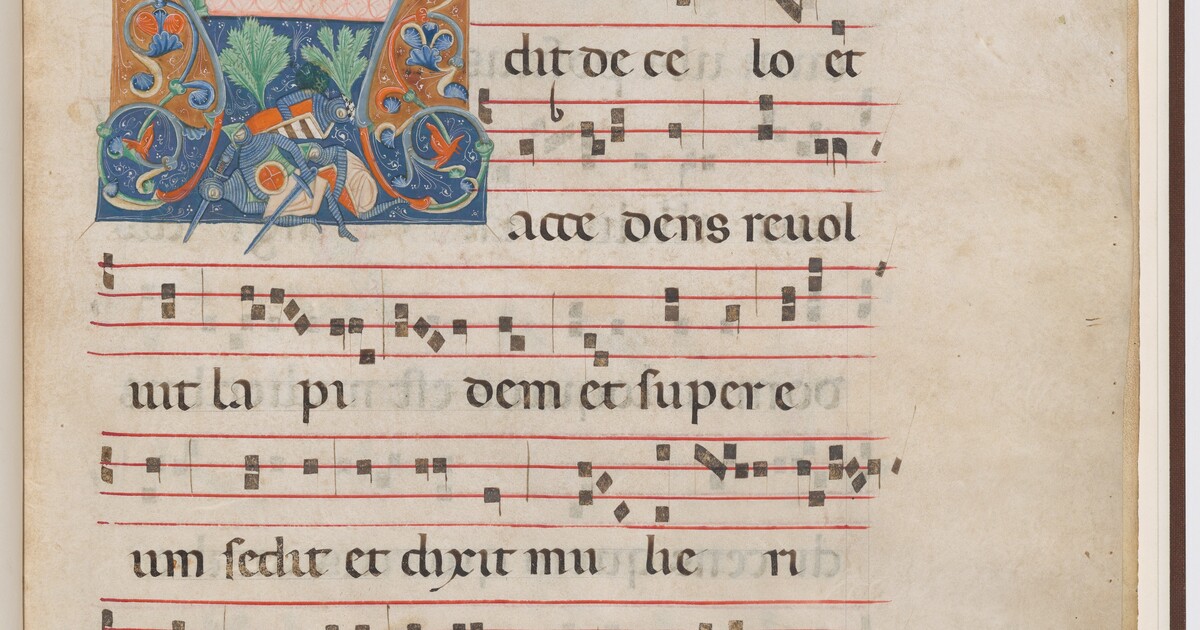 dit de ce lo et
acce dens reuol
uit la pi dem et super e
um sedit et dixit mu lie ri